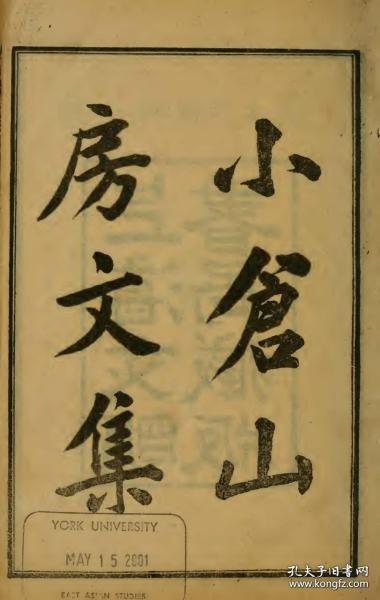 小倉山
房文集
YORK UNIVERSITY
MAY 15 2001
EAST ASIAN STUDIES
孔夫子旧书网
www.kongfz.com